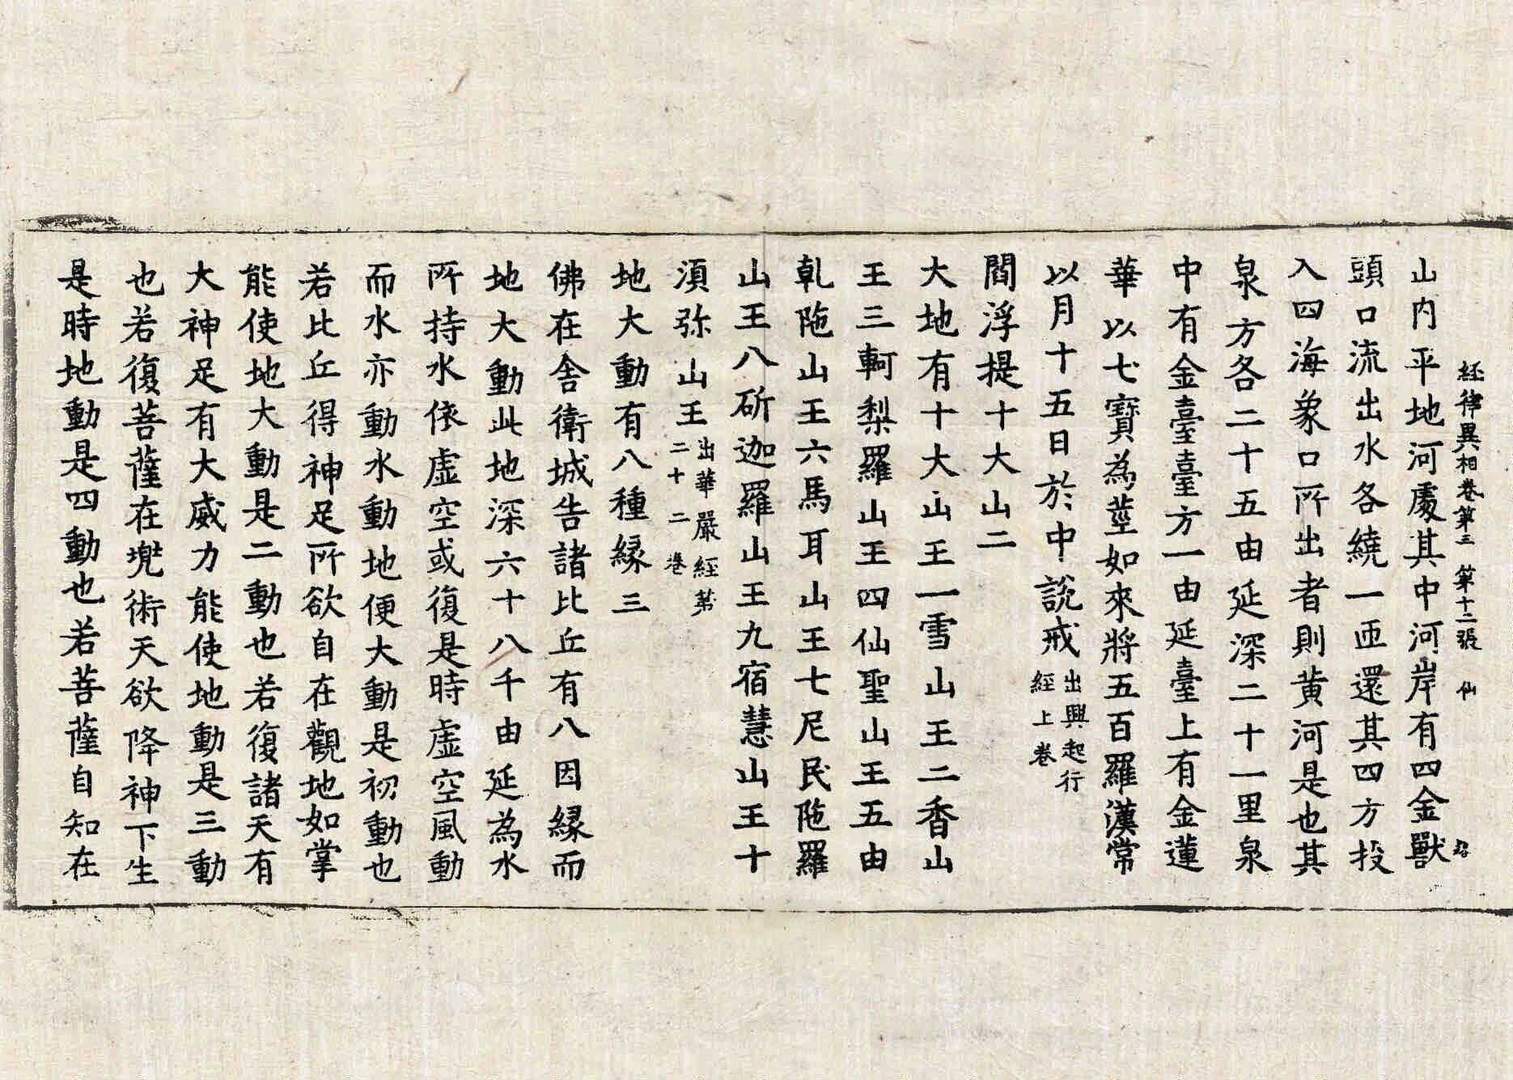 經律異相卷第三 第十二張 仙
山内平地河處其中河岸有四金獸
頭口流出水各繞一匝還其四方投
入四海象口所出者則黄河是也其
泉方各二十五由延深二十一里泉
中有金臺臺方一由延臺上有金蓮
華以七寶為莖如來將五百羅漢常
以月十五日於中說戒出興起行
經上卷
閻浮提十大山二
大地有十大山王一雪山王二香山
王三軻梨羅山王四仙聖山王五由
乹陁山王六馬耳山王七尼民陁羅
山王八斫迦羅山王九宿慧山王十
湏弥山王出華嚴經第
二十二卷
地大動有八種緣三
佛在舎衛城告諸比丘有八因緣而
地大動此地深六十八千由延為水
所持水依虛空或復是時虛空風動
而水亦動水動地便大動是初動也
若比丘得神足所欲自在觀地如掌
能使地大動是二動也若復諸天有
大神足有大威力能使地動是三動
也若復菩薩在兠術天欲降神下生
是時地動是四動也若菩薩自知在